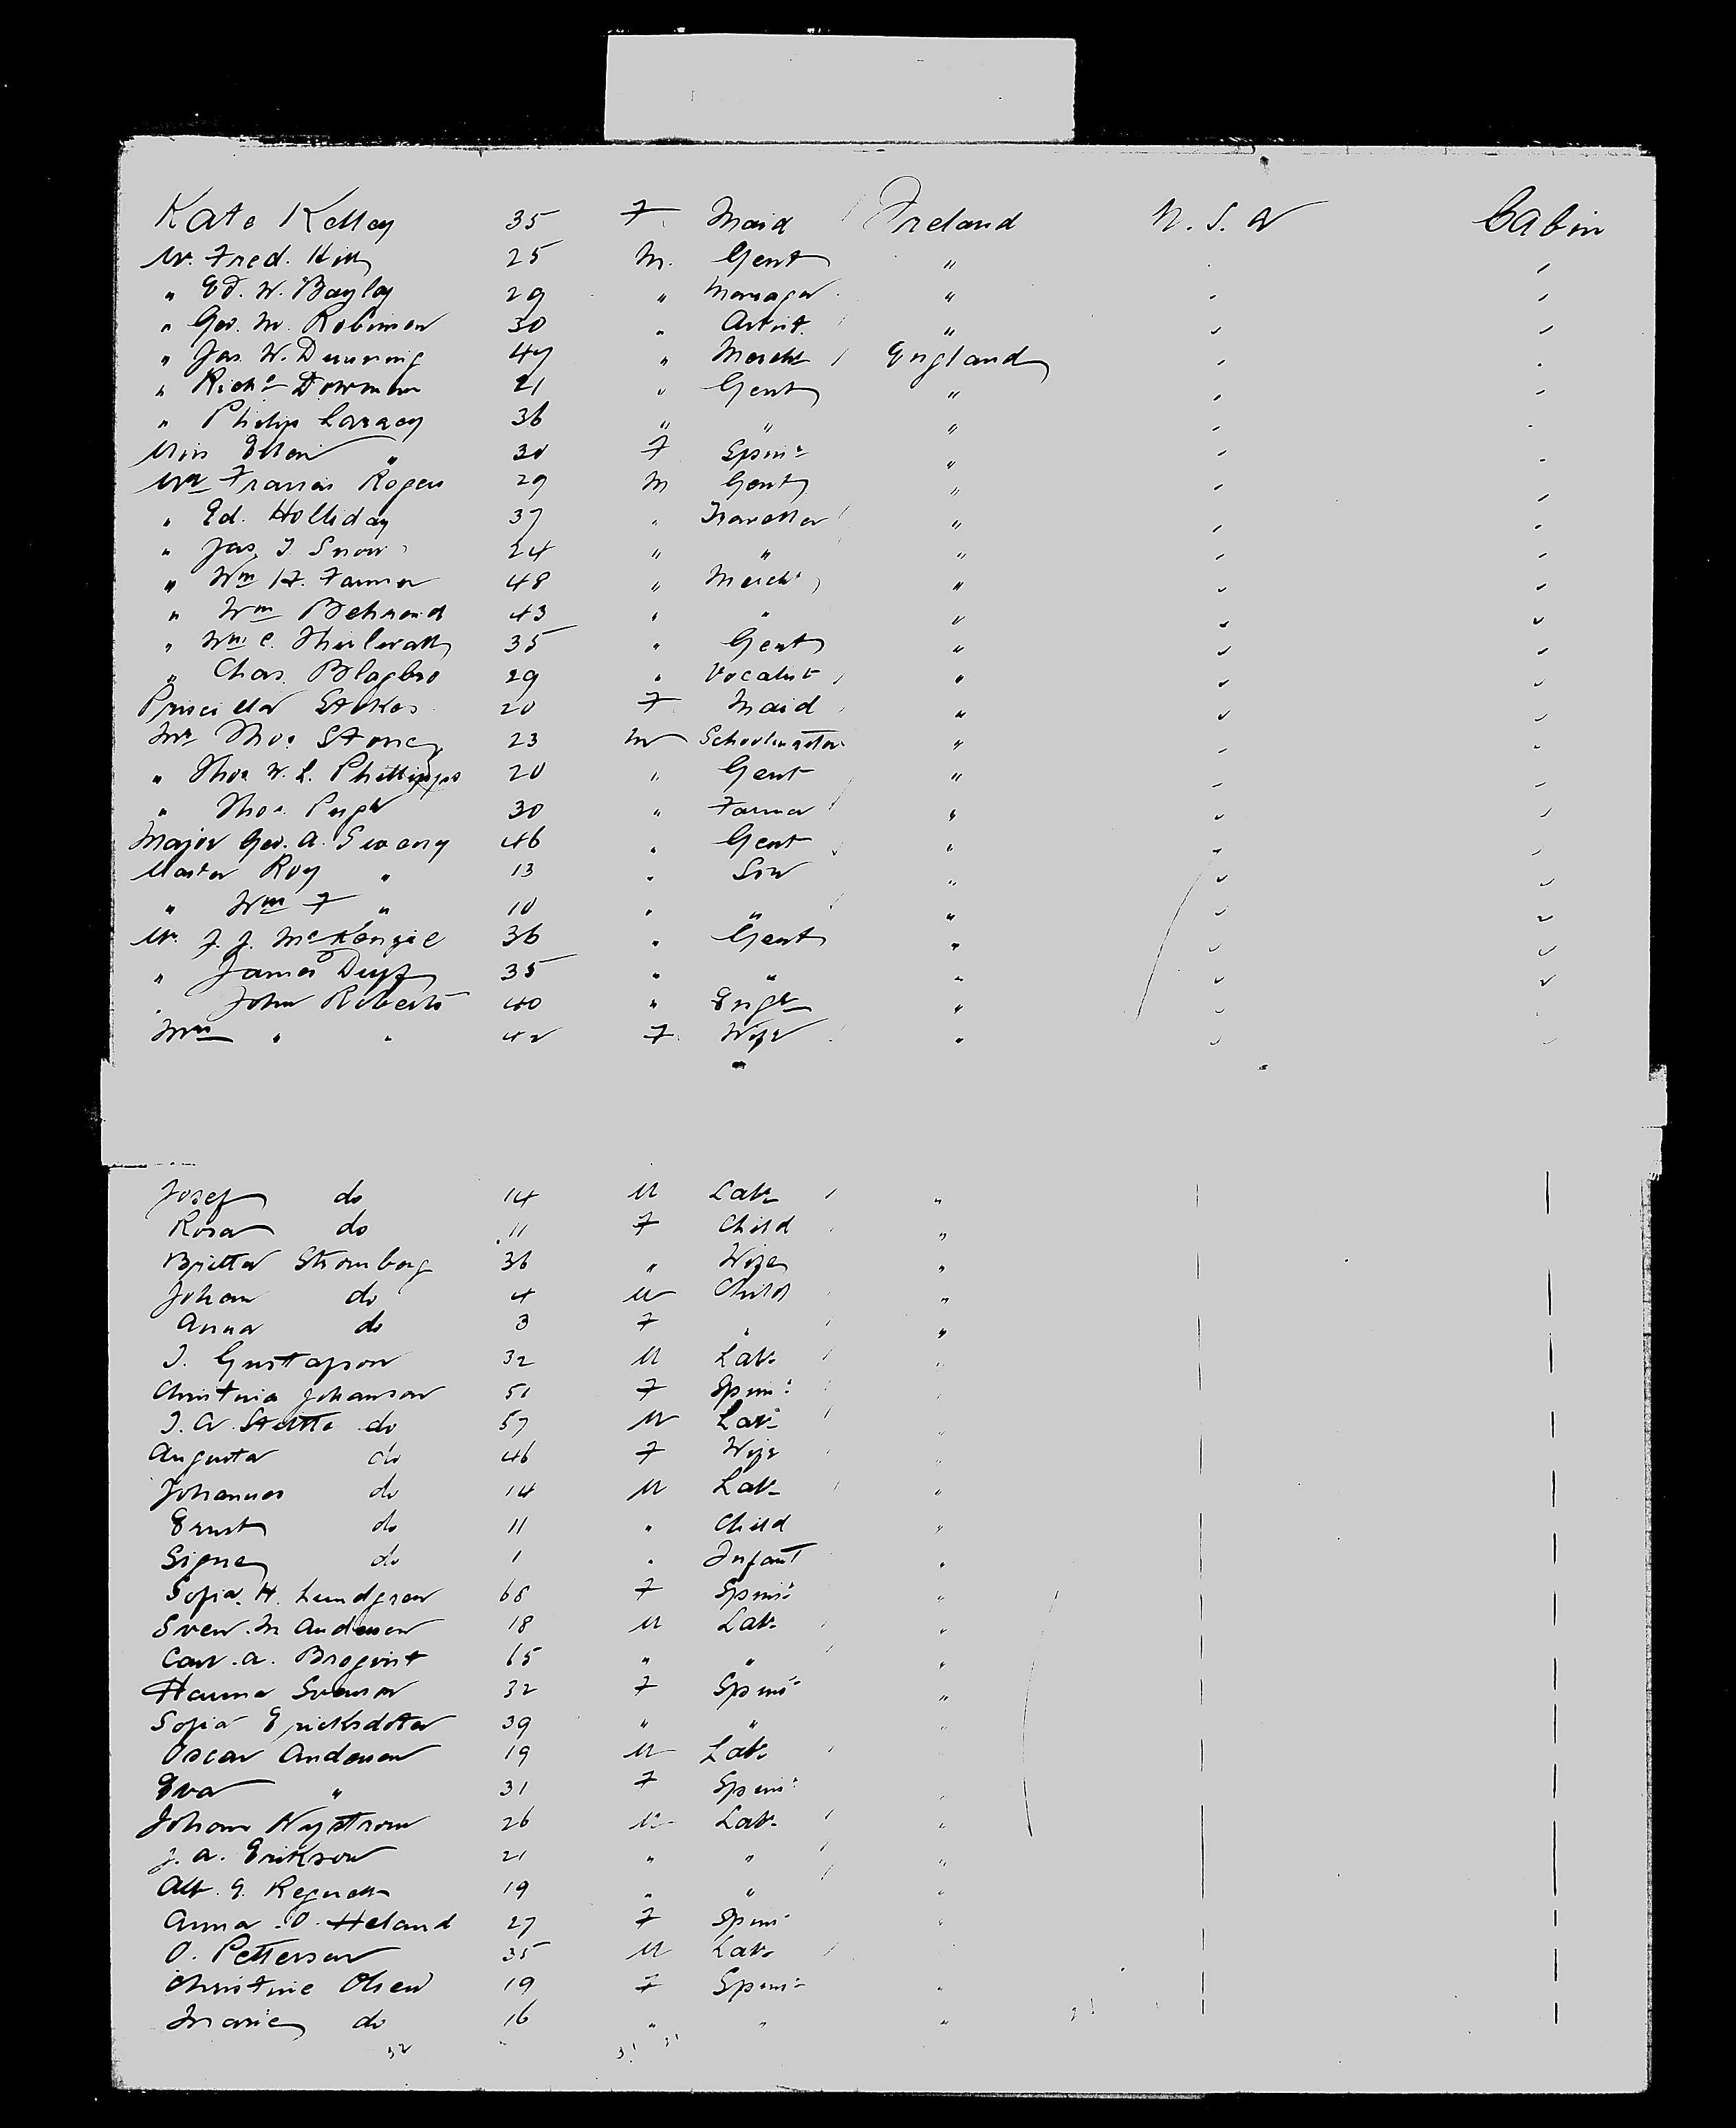 Kate Kelley 35 F Maid Ireland N.S.W Cabin
Mr. Fred. Hill 25 M. Gent " "
" Ed. W. Bayley 29 " Manager " " "
" Geo. M. Robinson 30 " Artist " " "
" Jas. W. Dunning 47 " Mercht England " "
" Richd Dowman 21 " Gent " " "
" Philip 36 " " " " "
Miss Ellen " 30 F Spinr " " "
Mr Francis Rogers 29 M Gent " " "
" Ed. Holliday 37 " Traveller " " "
" Jas. T. Snow 24 " " " " "
" Wm H. Farmer 48 " Mercht " " "
" Wm Behrend 43 " " " " "
" Wm C. 35 " Gent " " "
" Chas. Blagbro 29 " Vocalist " " "
Priscilla Stokes 20 F Maid " " "
Mr Thos Stoney 23 M Schoolmaster " " "
" Thos W. L. Phillipps 20 " Gent " " "
" Thos. Pugh 30 " Farmer " " "
Major Geo. A. 46 " Gent " " "
Master Roy " 13 " Son " " "
" Wm F " 10 " " " " "
Mr. J. J. McKenzie 36 " Gent " " "
" James Duff 35 " " " " "
" John Roberts 40 " Engr " " "
Mrs " " 42 F Wife " " "
Josef do 14 M Labr "
Rosa do 11 F Child "
Britta Stromberg 36 " Wife "
Johan do 4 M Child "
Anna do 3 F " "
J. Gustafson 32 M Labr "
Christina Johanson 51 F Spinr "
J. A. do 57 M Labr "
Augusta do 46 F Wife "
Johannes do 14 M Labr "
Ernst do 11 " Child "
Signe do 1 " Infant "
Sofia. H. Lundgren 68 F Spinr "
Sven. M Anderson 18 M Labr "
Carl. A. Broqvist 65 " " "
Hanna Svenson 32 F Spinr "
Sofia Ericksdotter 39 " " "
Oscar Anderson 19 M Labr "
Eva " 31 F Spinr "
Johan Nystrom 26 M Labr "
J. A. Erikson 21 " " "
Alf. G. 19 " " "
Anna. O. Heland 27 F Spinr "
O. Petterson 35 M Labr
Christine Olsen 19 F Spinr "
Marie do 16 " " "
32 31 31